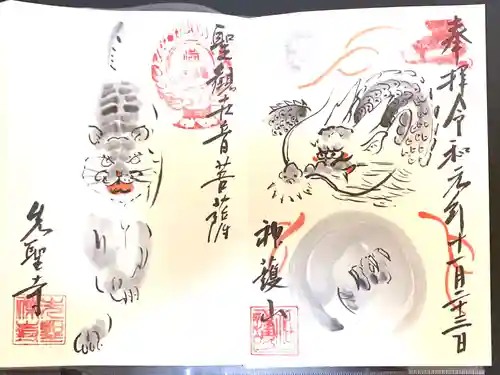 奉拝 令和元年十一月二十三日
神護山
聖観世音菩薩
先聖寺